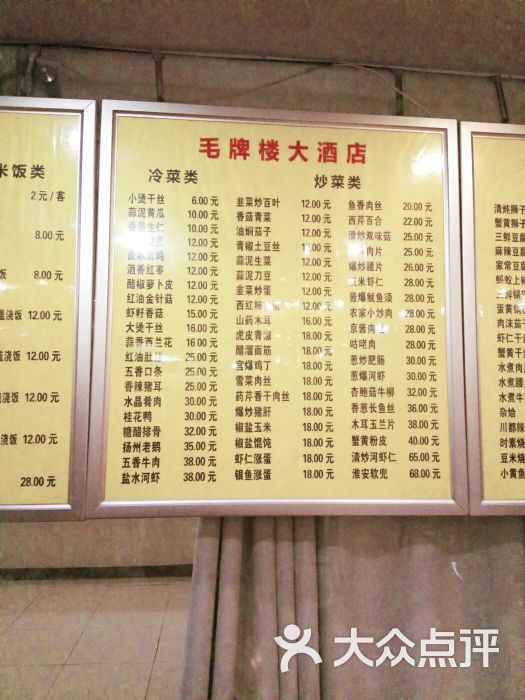 毛牌楼大酒店
冷菜类
小烫干丝 6.00 元
蒜泥黄瓜 10.00 元
香菜生仁 10.00 元
12.00 元
卤水素鸡 12.00 元
酒香红枣 12.00 元
醋椒萝卜皮 12.00 元
红油金针菇 12.00 元
虾籽香菇 15.00 元
大烫干丝 16.00 元
蒜香西兰花 16.00 元
红油肚丝 25.00 元
五香口条 25.00 元
香辣猪耳 25.00 元
水晶肴肉 30.00 元
桂花鸭 30.00 元
糖醋排骨 32.00 元
扬州老鹅 35.00 元
五香牛肉 38.00 元
盐水河虾 38.00 元
炒菜类
韭菜炒百叶 12.00 元
香菇青菜 12.00 元
油焖茄子 12.00 元
青椒土豆丝 12.00 元
蒜泥生菜 12.00 元
蒜泥刀豆 12.00 元
韭菜炒蛋 12.00 元
西红柿 12.00 元
山药木耳 18.00 元
虎皮青椒 18.00 元
醋溜面筋 18.00 元
宫爆鸡丁 18.00 元
雪菜肉丝 18.00 元
药芹香干肉丝 18.00 元
爆炒猪肝 18.00 元
椒盐玉米 18.00 元
椒盐馄饨 18.00 元
虾仁涨蛋 18.00 元
银鱼涨蛋 18.00 元
鱼香肉丝 20.00 元
西芹百合 22.00 元
滑炒双味菇 25.00 元
肉片 25.00 元
爆炒腰片 26.00 元
玉米虾仁 28.00 元
酱爆鱿鱼须 28.00 元
农家小炒肉 28.00 元
京酱肉丝 28.00 元
咕咾肉 28.00 元
葱炒肥肠 30.00 元
葱爆河虾 30.00 元
杏鲍菇牛柳 32.00 元
香葱长鱼丝 38.00 元
木耳玉兰片 38.00 元
蟹黄粉皮 40.00 元
清炒河虾仁 65.00 元
淮安软兜 68.00 元
米饭类
2 元/客
8.00 元
饭 8.00 元
盖浇饭 12.00 元
浇饭 12.00 元
浇饭 12.00 元
浇饭 12.00 元
28.00 元
清炖狮子
蟹黄狮子
三鲜豆腐
麻辣豆腐
家常豆腐
蚂蚁上
三鲜锅
蛋黄锅
肉沫茄子
虾仁干
蟹黄干
水煮肉
水煮鱼
水煮牛
杂烩
川都辣
时素烧
豆米烧
小黄鱼
大众点评